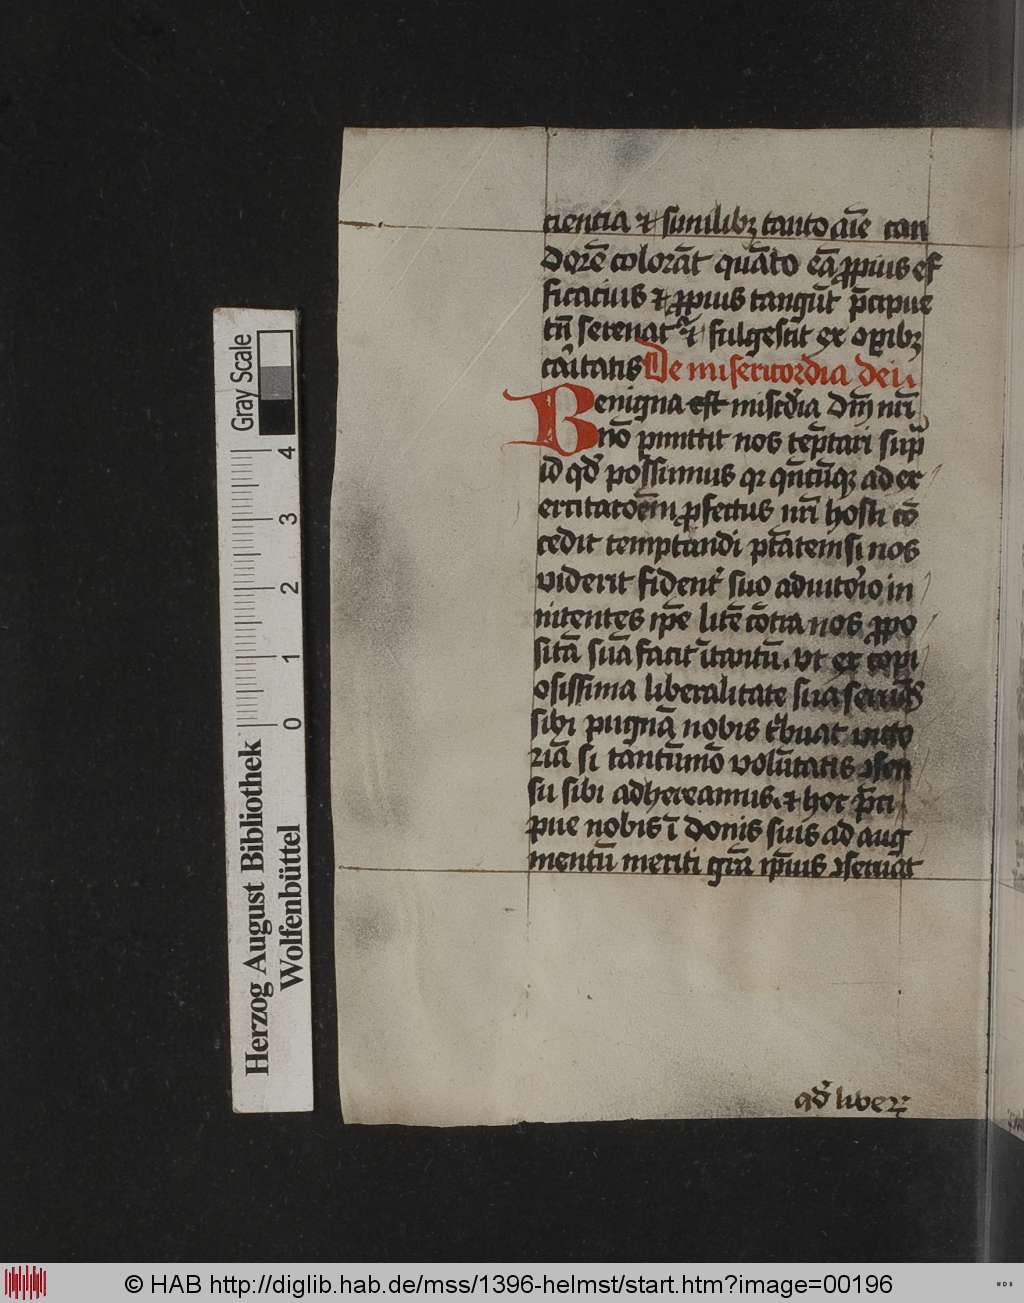 cientia et similibꝫ tanto aīe can
dorē colorāt quāto eā ꝓpius ef
ficacius et ꝓpius tangūt p̄cipue
tn̄ serenat᷑ et fulgescit ex oꝑibꝫ
caritatis De misericordia dei
Benigna est mīscd̕ia dn̄i nr̄i
nō pmittit nos tēptari sup̄
id qd̕ possumus qr qn̄cūqꝫ ad ex
ercitatōem ꝓfectus nr̄i hosti cō
cedit temptandi ptātem si nos
viderit fident̕ suo adiutorio in
nitentes ip̄e licē cōtra nos ꝓpo
sitā suā facit ītantū. vt ex copi
osissima liberalitate sua secūd̕
sibi pugnā nobis t̕buat victo
riā si tantūmō volūtatis ꝯsen
su sibi adhereamus. et hoc p̄ci
pue nobis ī donis suis ad aug
mentū meriti grā ip̄ius ꝯseruāt
qd̕ liber
Gray Scale
4
3
2
1
0
Herzog August Bibliothek
Wolfenbüttel
© HAB http://diglib.hab.de/mss/1396-helmst/start.htm?image=00196